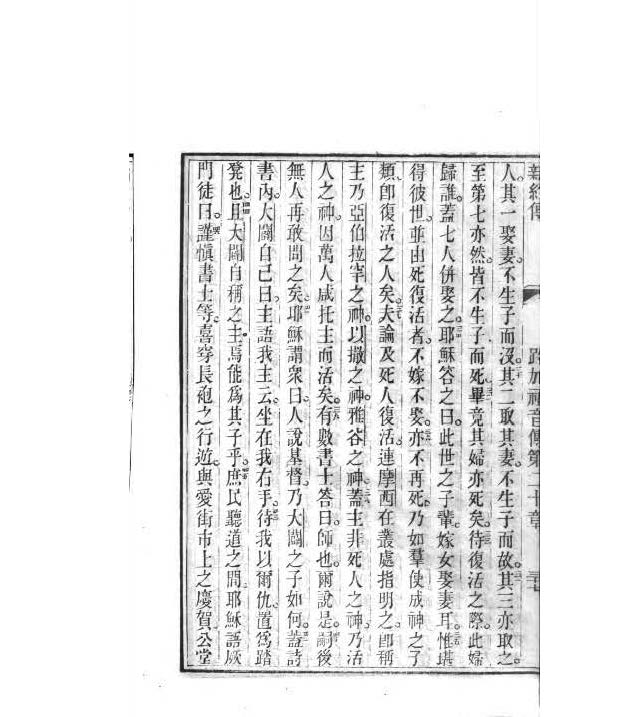 新經傳 路加福音傳第二十章 三七
人其一娶妻不生子而沒其二取其妻不生子而故其三亦取之
至第七亦然皆不生子而死畢竟其婦亦死矣待復活之際此婦
歸誰蓋七人併娶之耶穌答之曰此世之子輩嫁女娶妻耳惟堪
得彼世並由死復活者不嫁不娶亦不再死乃如羣使成神之子
類卽復活之人矣夫論及死人復活連摩西在叢處指明之卽稱
主乃亞伯拉宰之神以撒之神雅谷之神蓋主非死人之神乃活
人之神因萬人咸托主而活矣有數書士答曰師也爾說是嗣後
無人再敢問之矣耶穌謂衆曰人說基督乃大闢之子如何蓋詩
書內大闢自己曰主語我主云坐在我右手待我以爾仇置爲踏
凳也且大闢自稱之主焉能爲其子乎庶民聽道之間耶穌語厥
門徒曰謹愼書士等喜穿長袍之行遊與愛街市上之慶賀公堂